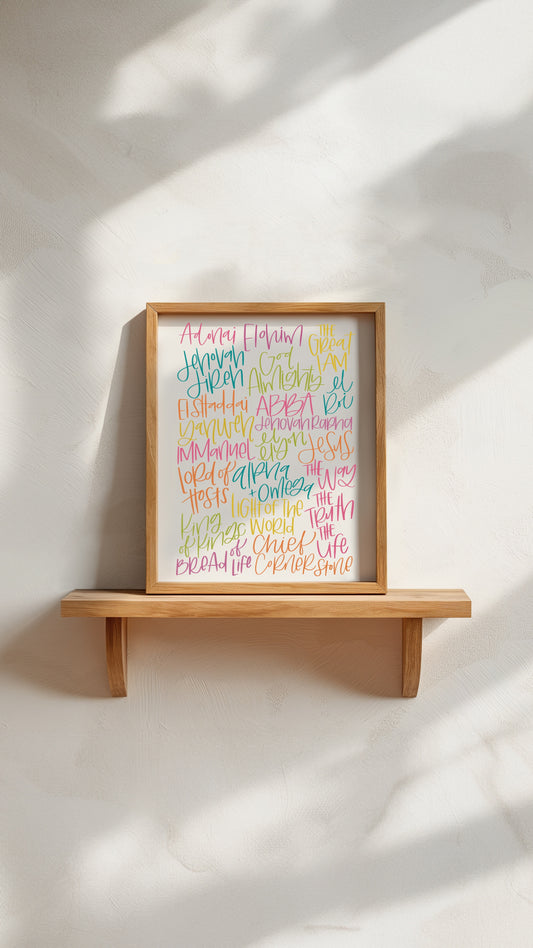 Adonai Elohim
THE GREAT I AM
Jehovah Jireh
God Almighty
el Roi
El Shaddai
ABBA
Yahweh
Jehovah Rapha
IMMANUEL
el elyon
Jesus
LORD OF HOSTS
alpha + Omega
THE WAY
THE TRUTH
THE LIFE
LIGHT OF THE WORLD
King of Kings
BREAD of LIFE
Chief CORNERSTONE